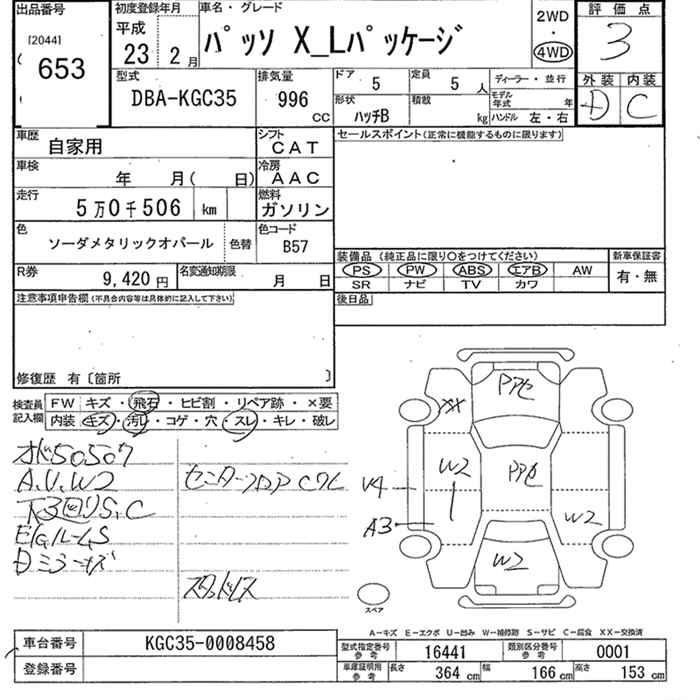 出品番号
[2044]
653
初度登録年月
平成
23 2月
車名・グレード
パッソ X_Lパッケージ
2WD
・
4WD
評価点
3
外装 内装
D C
型式
DBA-KGC35
排気量
996
CC
ドア 5
定員 5 人
ディーラー・並行
形状 ハッチB
積載 kg
モデル年式 年
ハンドル 左・右
車歴 自家用
シフト CAT
セールスポイント(正常に機能するものに限ります)
車検 年 月( 日)
冷房 AAC
走行 5万0千506 km
燃料 ガソリン
色 ソーダメタリックオパール 色替
色コード B57
装備品 (純正品に限り○をつけてください)
新車保証書
PS PW ABS エアB AW
有・無
SR ナビ TV カワ
R券 9,420円
名変通知期限 月 日
後日品
注意事項申告欄(不具合内容等は具体的に記入して下さい)
修復歴 有〔箇所 〕
検査員記入欄
FW キズ・飛石・ヒビ割・リペア跡・×要
内装 キズ・汚レ・コゲ・穴・スレ・キレ・破レ
A.U.W2
下回りS,C
スタッドレス
PPセ
XX
W2
PPセ
V4
A3
W2
W2
スペア
A-キズ E-エクボ U-凹み W-補修跡 S-サビ C-腐食 XX-交換済
車台番号 KGC35-0008458
登録番号
型式指定番号参考 16441
類別区分番号参考 0001
車庫証明用参考 長さ 364 cm 幅 166 cm 高さ 153 cm